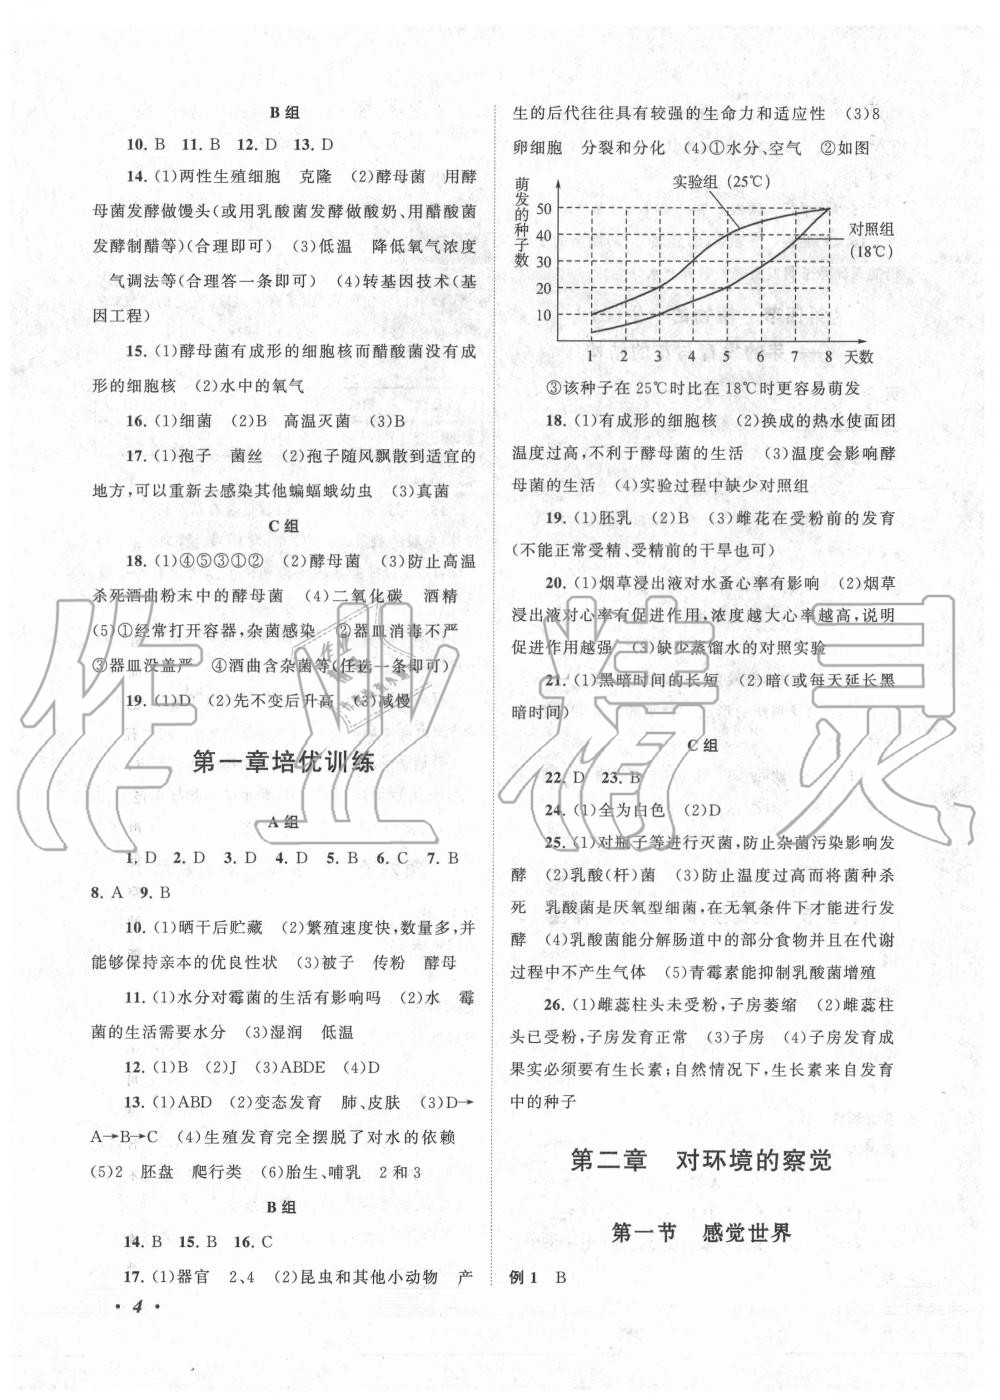 B 组
10. B  11. B  12. D  13. D
14. (1)两性生殖细胞  克隆  (2)酵母菌  用酵
母菌发酵做馒头(或用乳酸菌发酵做酸奶、用醋酸菌
发酵制醋等)(合理即可)  (3)低温  降低氧气浓度
气调法等(合理答一条即可)  (4)转基因技术(基
因工程)
15. (1)酵母菌有成形的细胞核而醋酸菌没有成
形的细胞核  (2)水中的氧气
16. (1)细菌  (2)B  高温灭菌  (3)B
17. (1)孢子  菌丝  (2)孢子随风飘散到适宜的
地方,可以重新去感染其他蝙蝠蛾幼虫  (3)真菌
C 组
18. (1)④⑤③①②  (2)酵母菌  (3)防止高温
杀死酒曲粉末中的酵母菌  (4)二氧化碳  酒精
(5)①经常打开容器,杂菌感染  ②器皿消毒不严
③器皿没盖严  ④酒曲含杂菌等(任选一条即可)
19. (1)D  (2)先不变后升高  (3)减慢
第一章培优训练
A 组
1. D  2. D  3. D  4. D  5. B  6. C  7. B
8. A  9. B
10. (1)晒干后贮藏  (2)繁殖速度快,数量多,并
能够保持亲本的优良性状  (3)被子  传粉  酵母
11. (1)水分对霉菌的生活有影响吗  (2)水  霉
菌的生活需要水分  (3)湿润  低温
12. (1)B  (2)J  (3)ABDE  (4)D
13. (1)ABD  (2)变态发育  肺、皮肤  (3)D→
A→B→C  (4)生殖发育完全摆脱了对水的依赖
(5)2  胚盘  爬行类  (6)胎生、哺乳  2 和 3
B 组
14. B  15. B  16. C
17. (1)器官  2、4  (2)昆虫和其他小动物  产
· 4 ·
生的后代往往具有较强的生命力和适应性  (3)8
卵细胞  分裂和分化  (4)①水分、空气  ②如图
萌发的种子数
实验组(25℃)
对照组
(18℃)
50
40
30
20
10
1 2 3 4 5 6 7 8 天数
③该种子在 25℃时比在 18℃时更容易萌发
18. (1)有成形的细胞核  (2)换成的热水使面团
温度过高,不利于酵母菌的生活  (3)温度会影响酵
母菌的生活  (4)实验过程中缺少对照组
19. (1)胚乳  (2)B  (3)雌花在受粉前的发育
(不能正常受精、受精前的干旱也可)
20. (1)烟草浸出液对水蚤心率有影响  (2)烟草
浸出液对心率有促进作用,浓度越大心率越高,说明
促进作用越强  (3)缺少蒸馏水的对照实验
21. (1)黑暗时间的长短  (2)暗(或每天延长黑
暗时间)
C 组
22. D  23. B
24. (1)全为白色  (2)D
25. (1)对瓶子等进行灭菌,防止杂菌污染影响发
酵  (2)乳酸(杆)菌  (3)防止温度过高而将菌种杀
死  乳酸菌是厌氧型细菌,在无氧条件下才能进行发
酵  (4)乳酸菌能分解肠道中的部分食物并且在代谢
过程中不产生气体  (5)青霉素能抑制乳酸菌增殖
26. (1)雌蕊柱头未受粉,子房萎缩  (2)雌蕊柱
头已受粉,子房发育正常  (3)子房  (4)子房发育成
果实必须要有生长素;自然情况下,生长素来自发育
中的种子
第二章  对环境的察觉
第一节  感觉世界
例 1  B
作业精灵